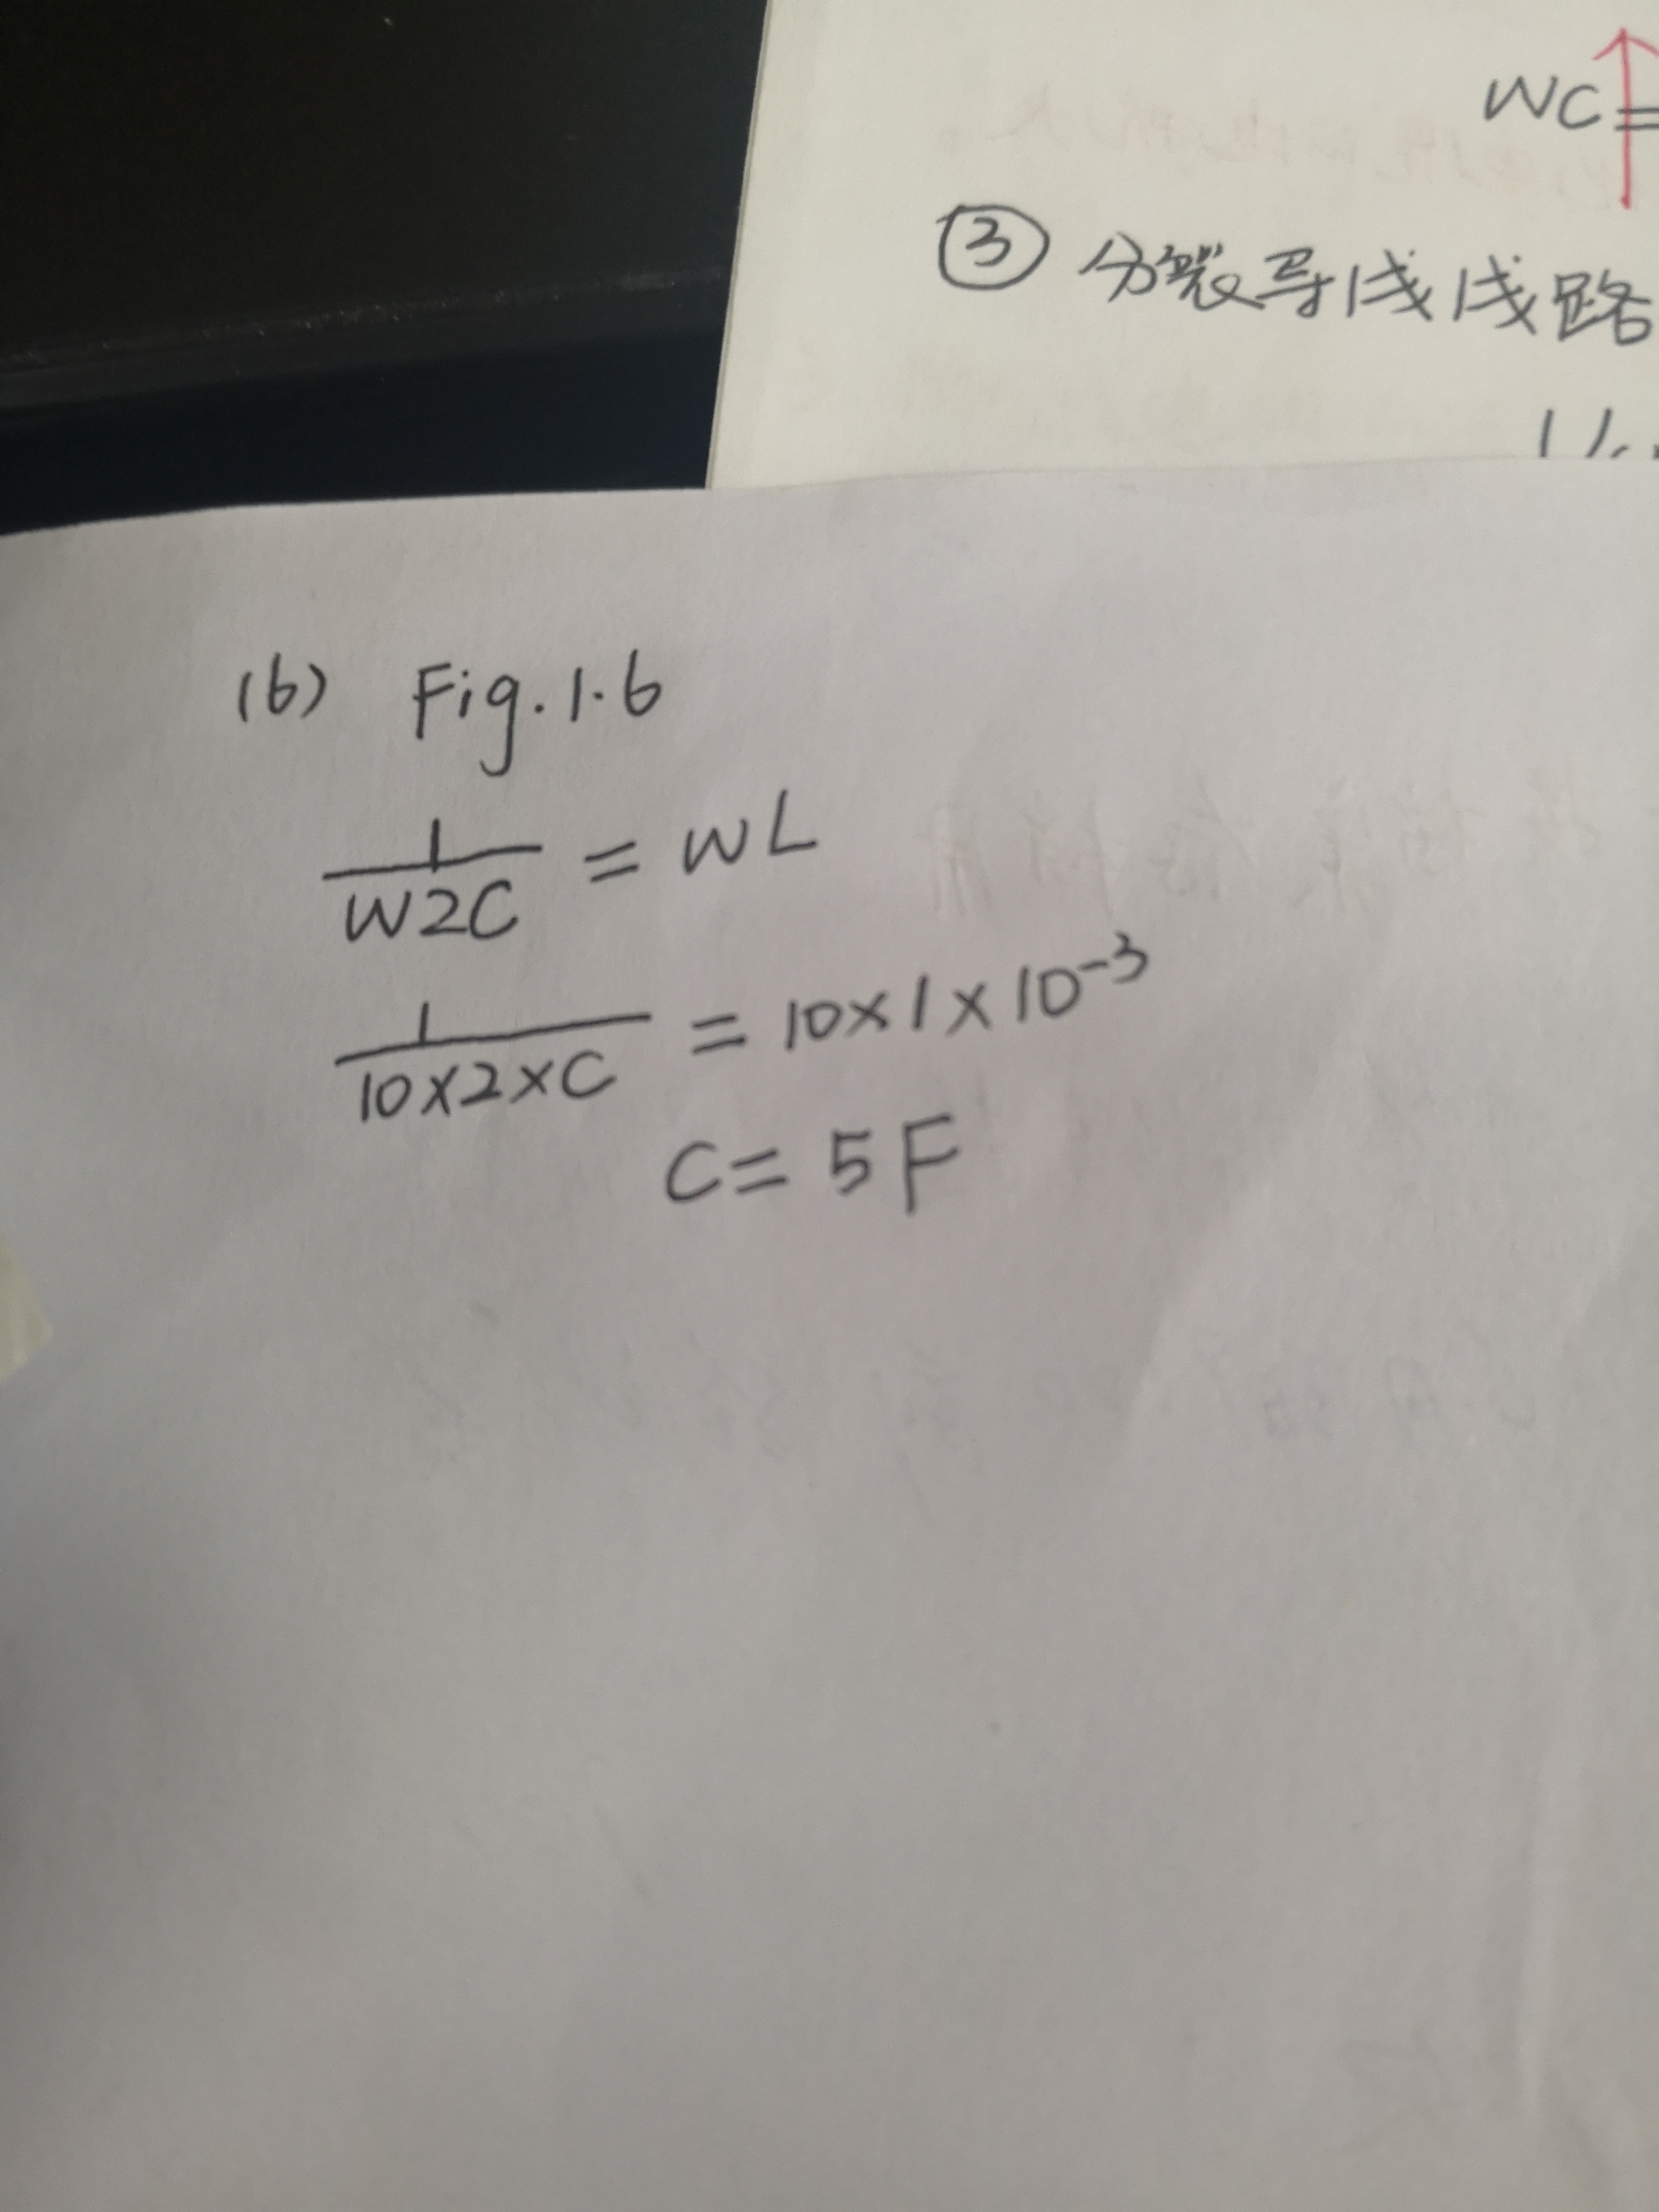 WC
③ 分裂导线线路
(b) Fig.1.6
1/W2C = WL
1/10×2×C = 10×1×10⁻³
C= 5F